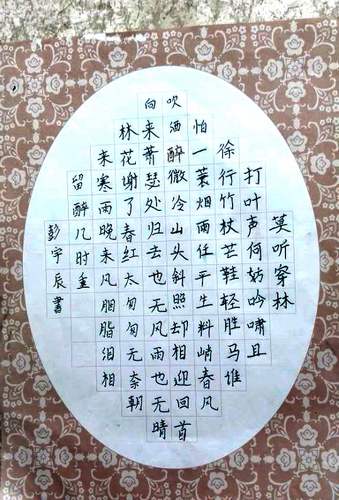 莫听穿林
打叶声何妨吟啸且
徐行竹杖芒鞋轻胜马谁
怕一蓑烟雨任平生料峭春风
吹酒醉微冷山头斜照却相迎回首
向来萧瑟处归去也无风雨也无晴
林花谢了春红太匆匆无奈朝
来寒雨晚来风胭脂泪相
留醉几时重
彭宇辰書